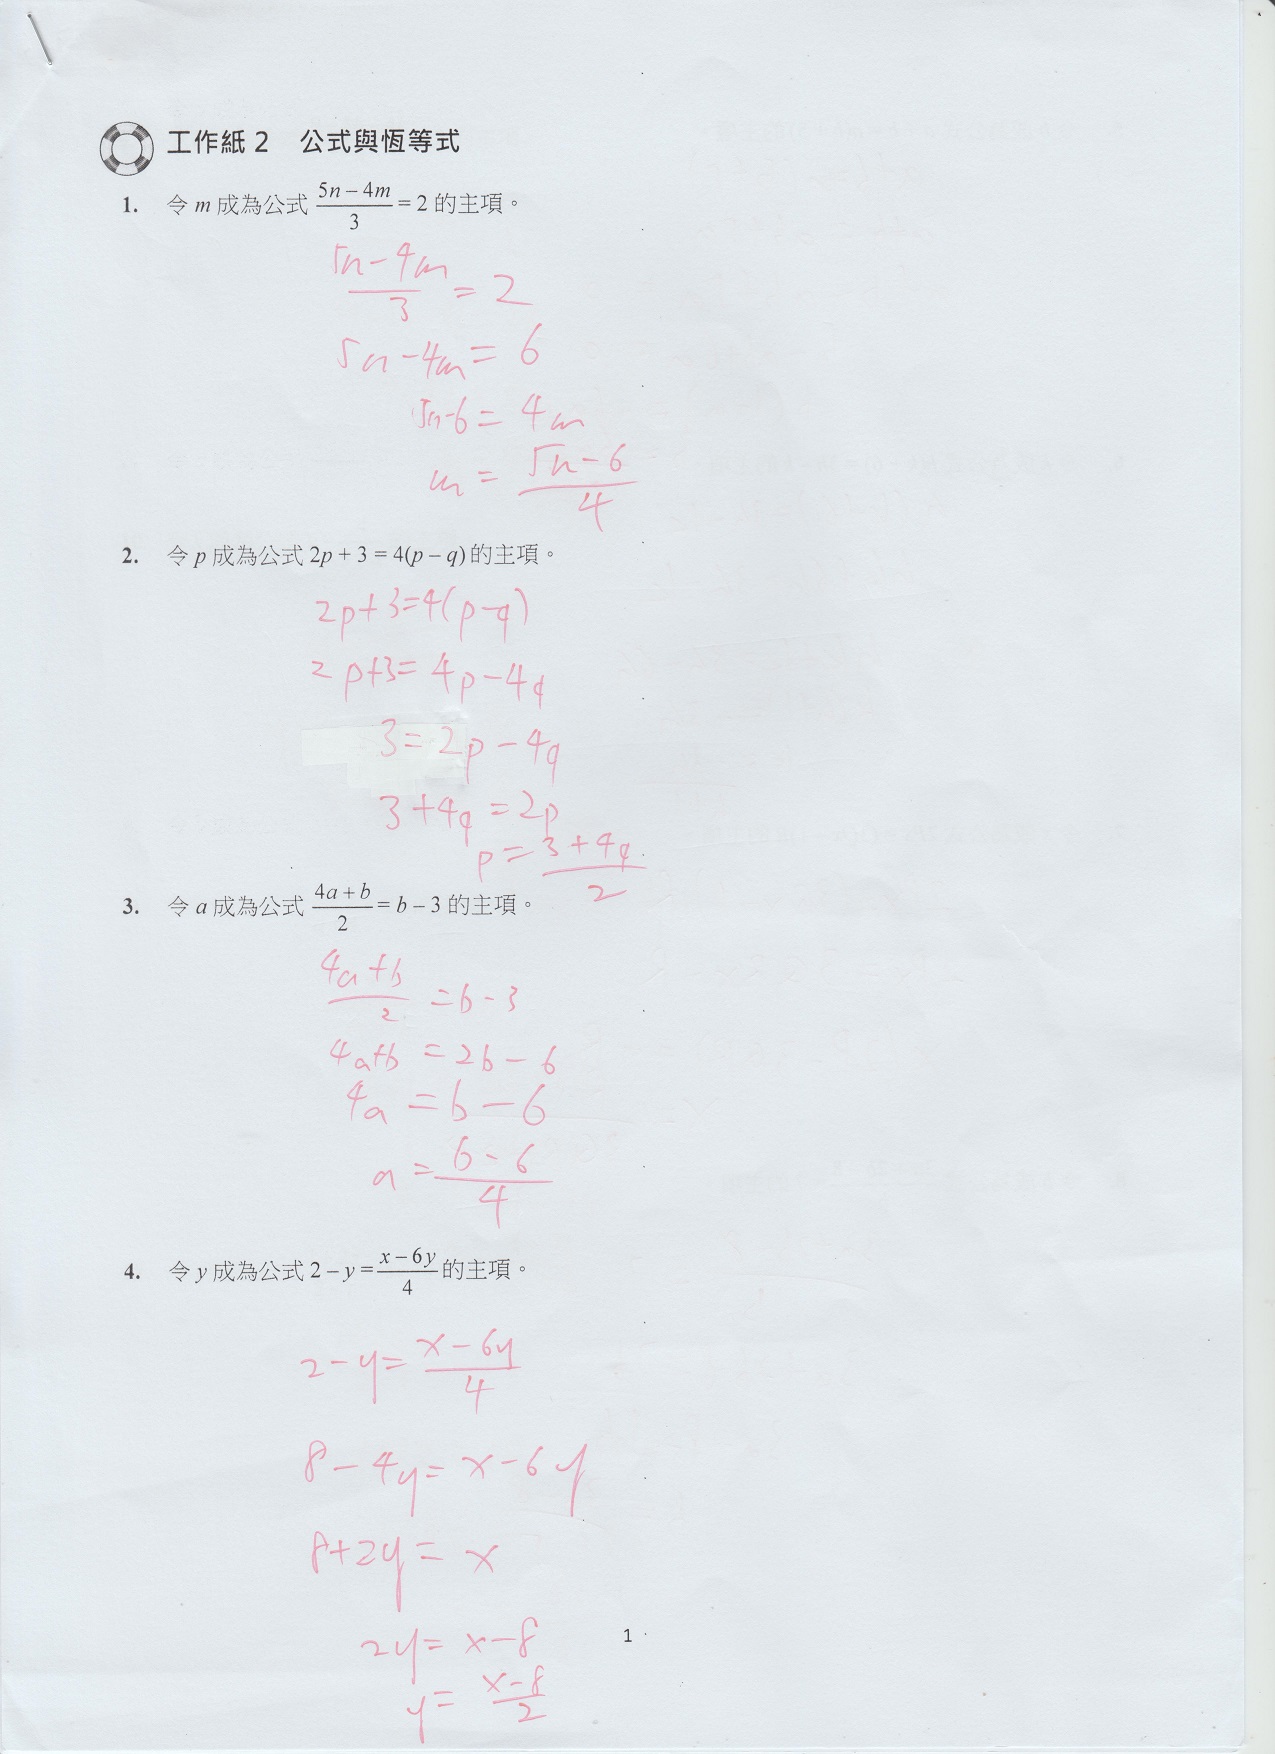 工作紙 2 公式與恆等式
1. 令 m 成為公式 (5n – 4m)/3 = 2 的主項。
(5n – 4m)/3 = 2
5n – 4m = 6
5n – 6 = 4m
m = (5n – 6)/4
2. 令 p 成為公式 2p + 3 = 4(p – q) 的主項。
2p + 3 = 4(p – q)
2p + 3 = 4p – 4q
3 = 2p – 4q
3 + 4q = 2p
p = (3 + 4q)/2
3. 令 a 成為公式 (4a + b)/2 = b – 3 的主項。
(4a + b)/2 = b – 3
4a + b = 2b – 6
4a = b – 6
a = (b – 6)/4
4. 令 y 成為公式 2 – y = (x – 6y)/4 的主項。
2 – y = (x – 6y)/4
8 – 4y = x – 6y
8 + 2y = x
2y = x – 8
y = (x – 8)/2
1